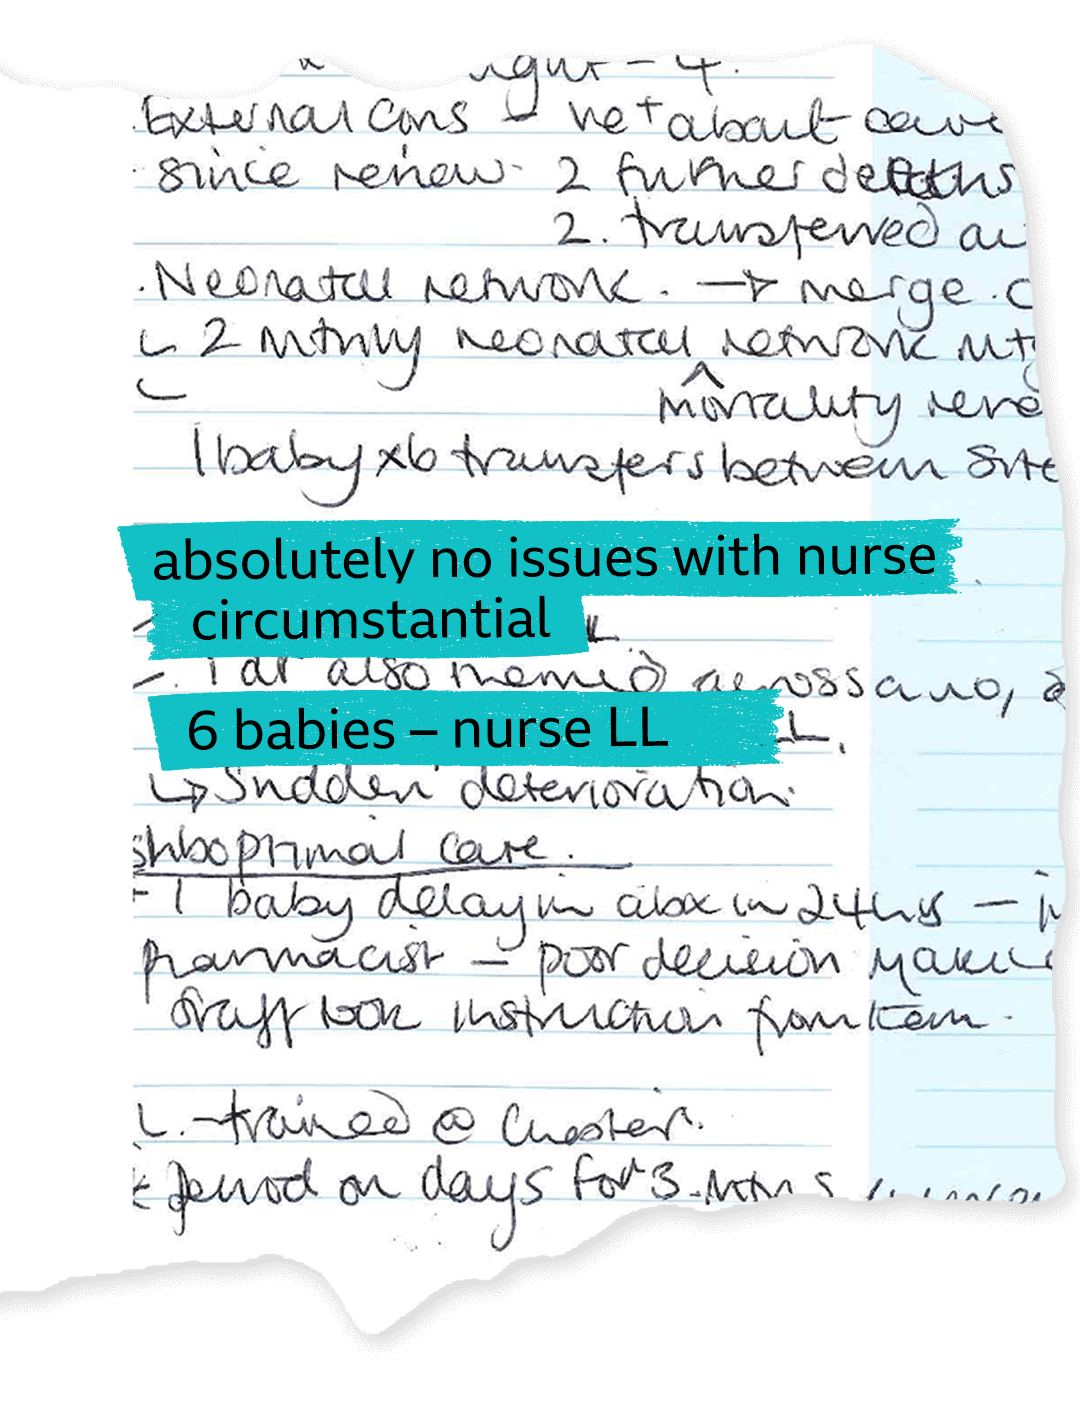 External Cons – ve+ about care
since review. 2 further deaths
2. transferred
. Neonatal network. → merge.
↳ 2 mthly neonatal network mtg
mortality
1 baby x6 transfers between site
absolutely no issues with nurse
circumstantial
also named across
6 babies – nurse LL
↳ Sudden deterioration.
Suboptimal care.
1 baby delay in abx in 24hrs –
pharmacist – poor decision making
staff took instruction from team.
L. - trained @ Chester.
period on days for 3.mths